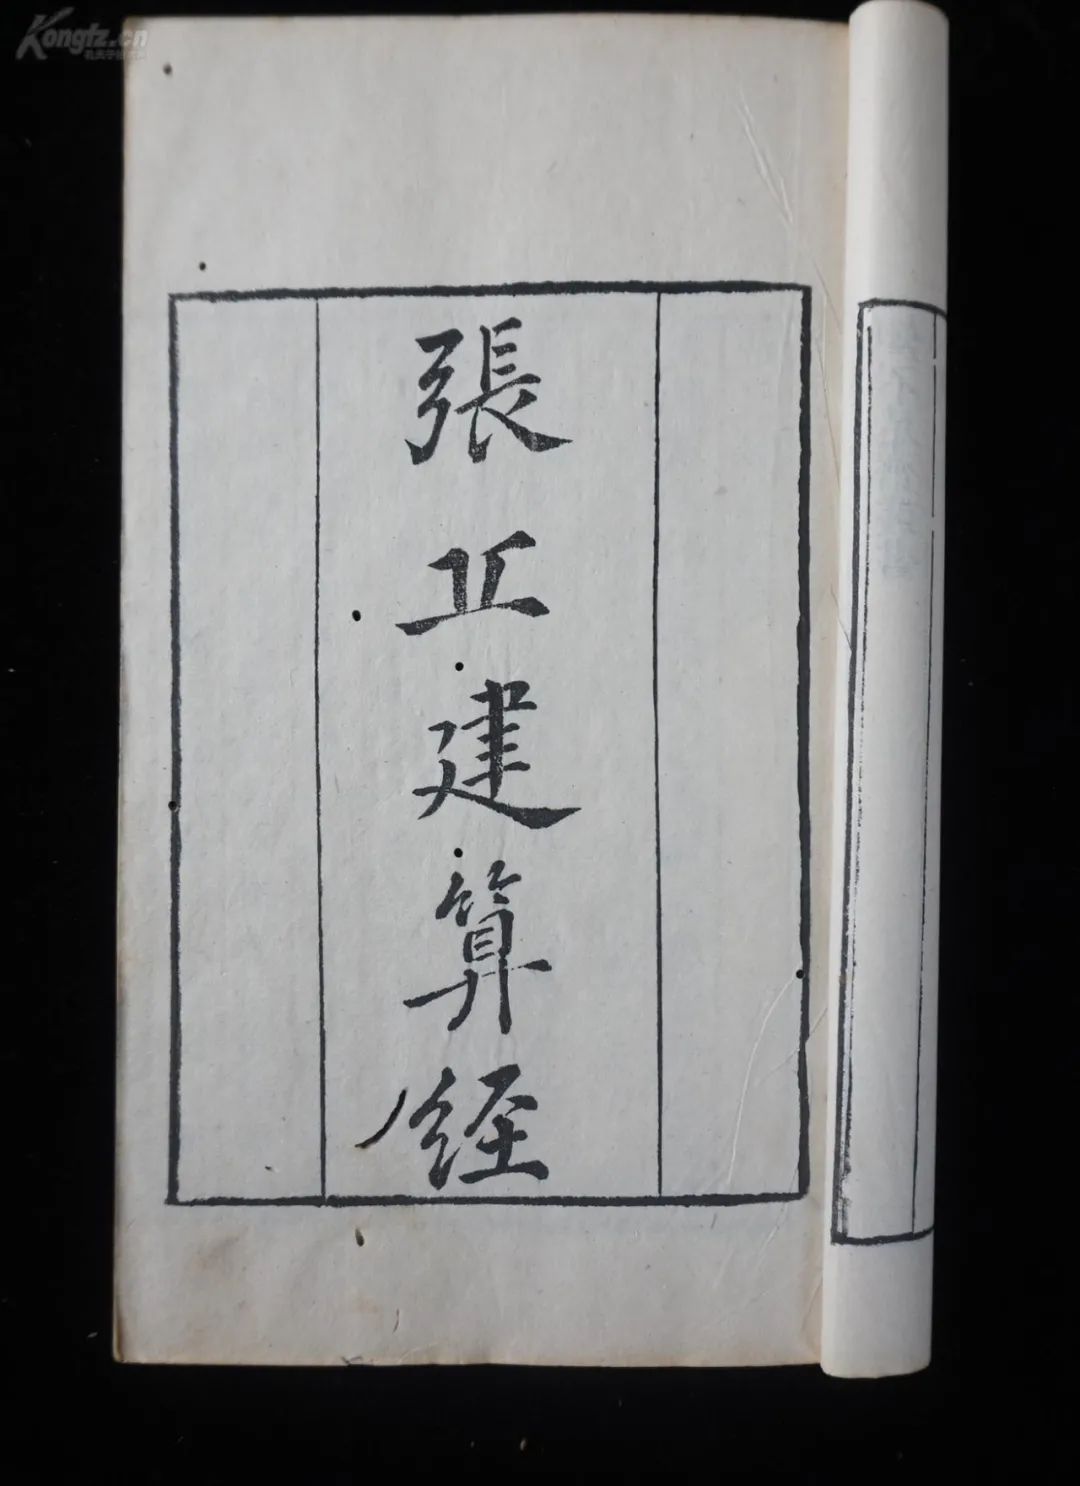 Kongfz.cn
張
丘
建
算
经